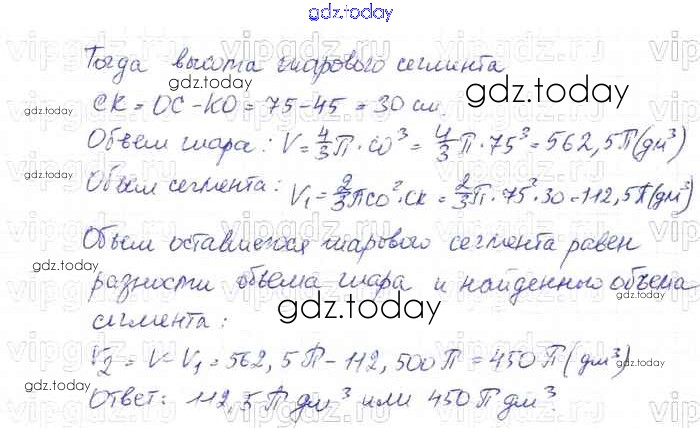 gdz.today
Тогда высота шарового сегмента
СК = ОС - КО = 75 - 45 = 30 см.
gdz.today
Объем шара: V = 4/3 П · СО³ = 4/3 П · 75³ = 562,5П (дм³)
Объем сегмента: V₁ = 2/3 ПСО² · СК = 2/3 П · 75² · 30 = 112,5П (дм³)
gdz.today
Объем оставшегося шарового сегмента равен
gdz.today
разности объема шара и найденного объема
gdz.today
gdz.today
сегмента:
V₂ = V - V₁ = 562,5П - 112,500П = 450П (дм³)
gdz.today
gdz.today
Ответ: 112,5П дм³ или 450П дм³.
vipgdz.ru